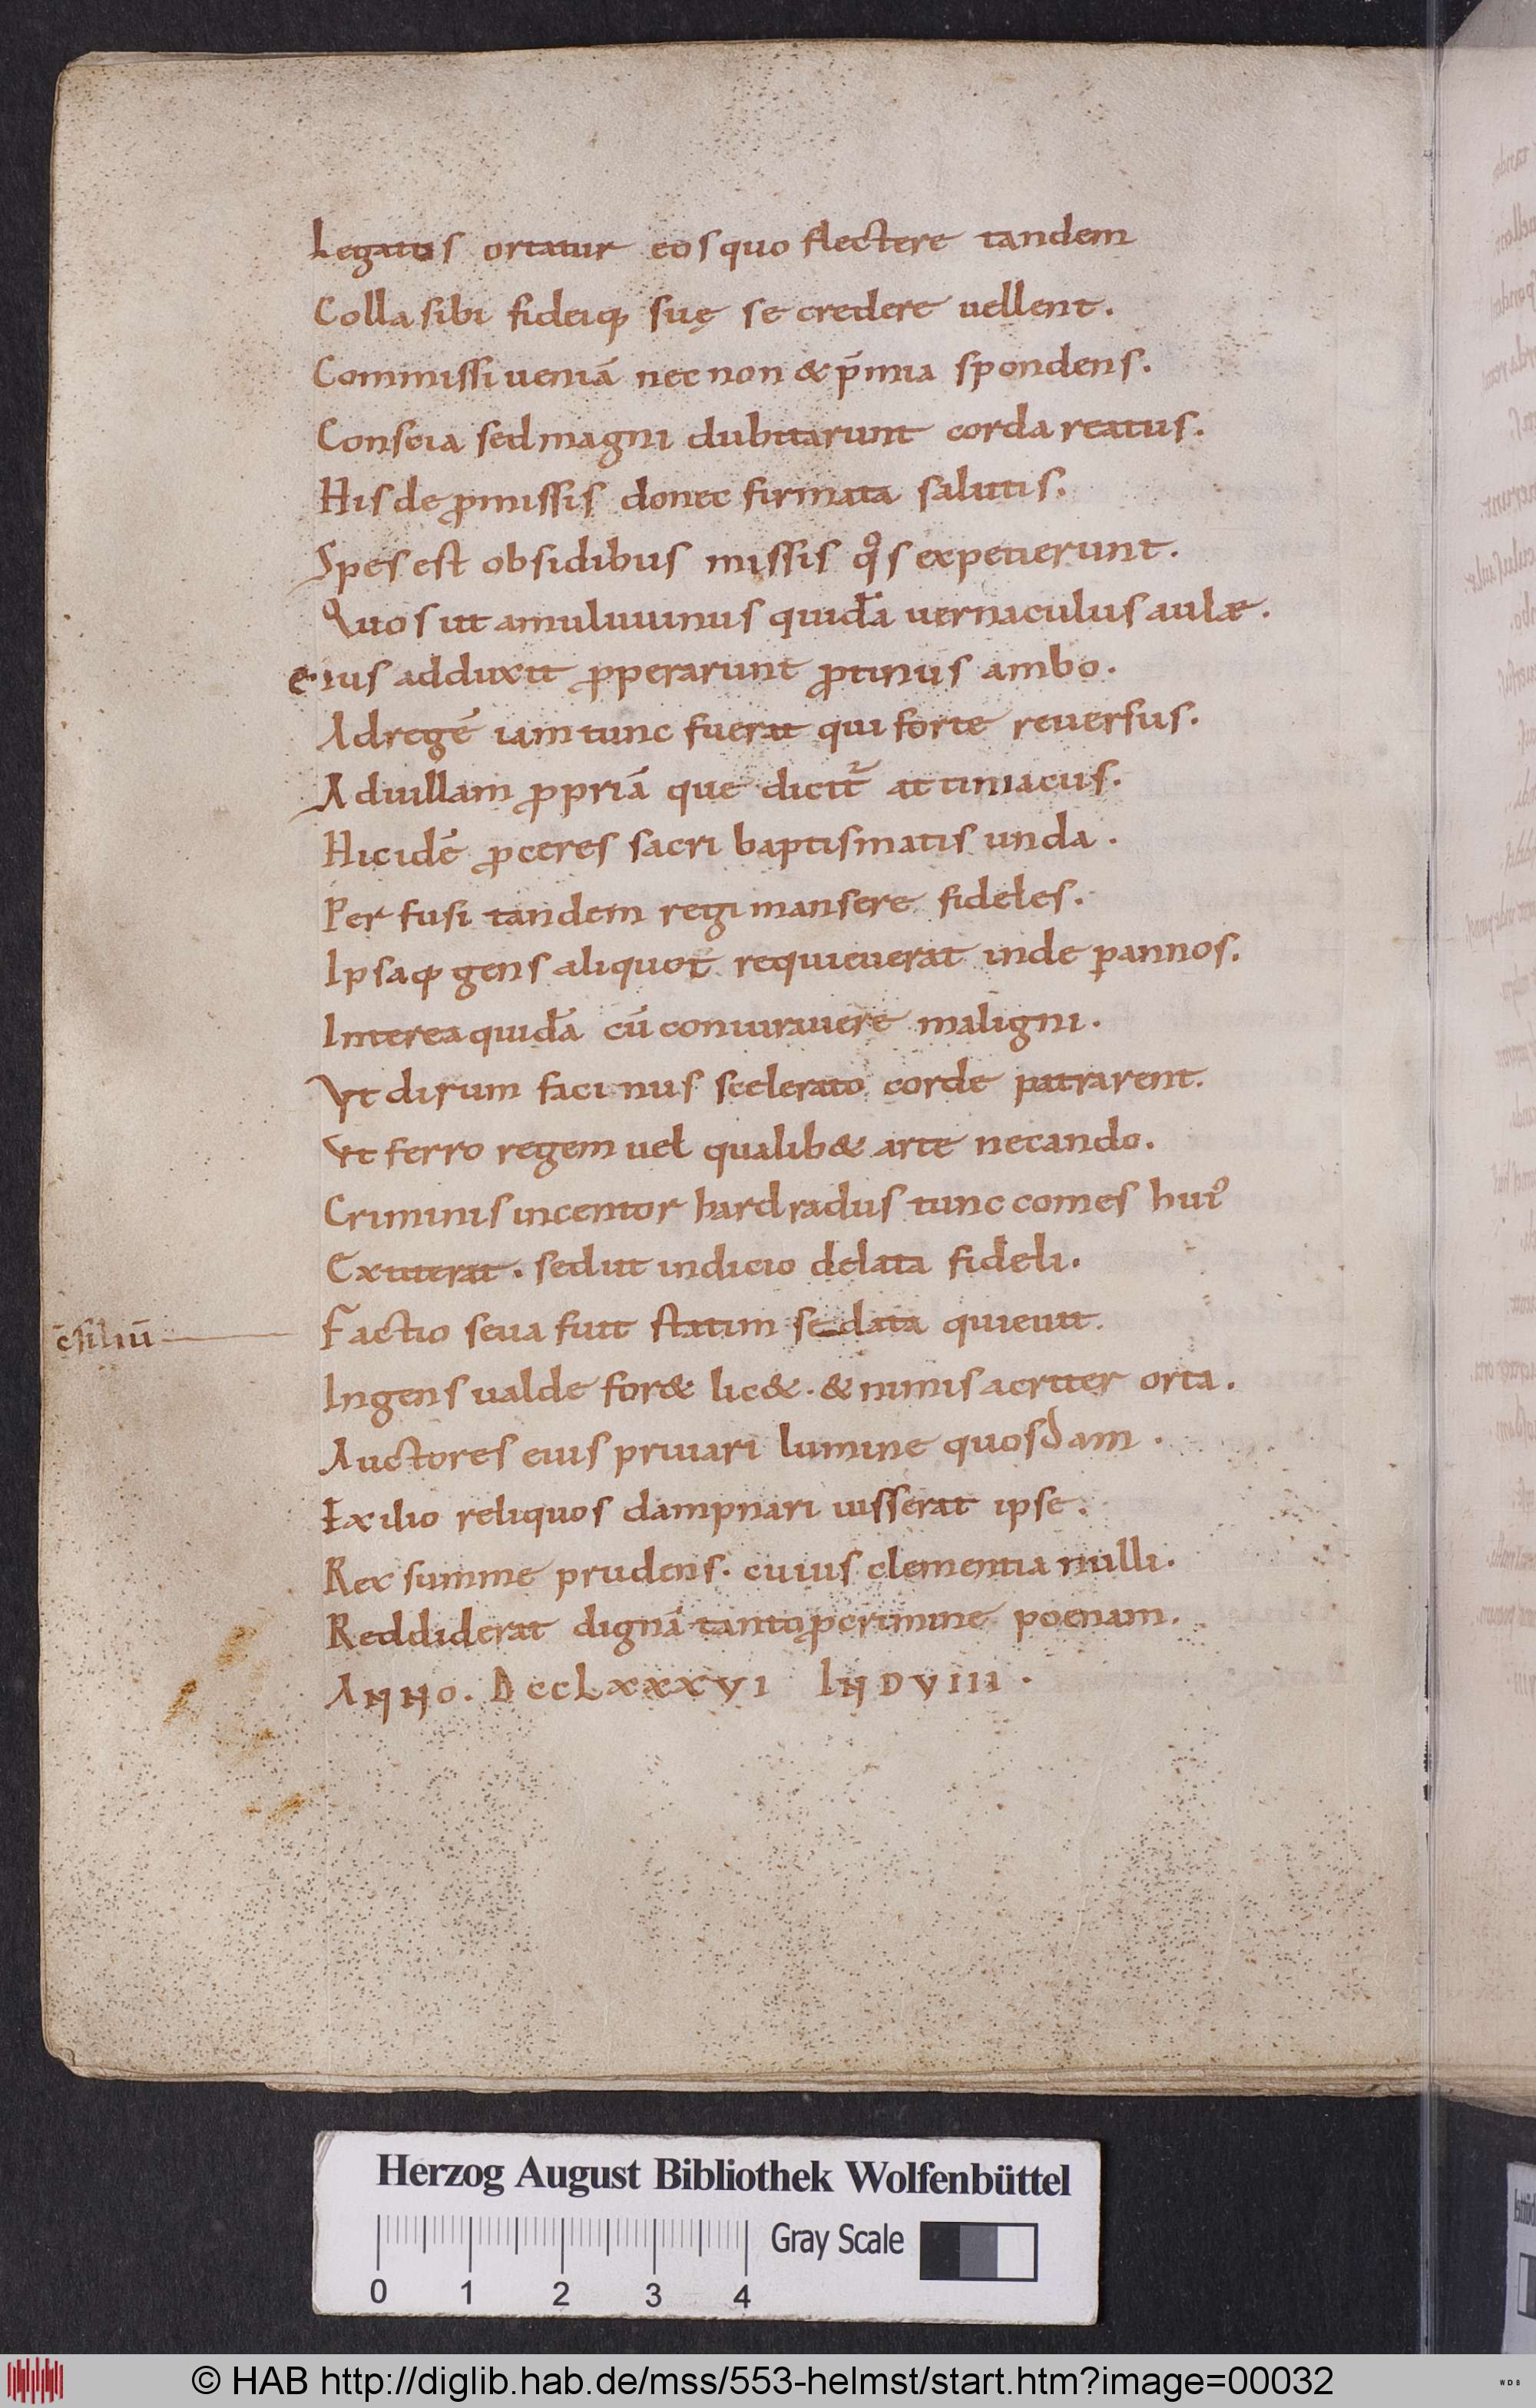 Legatus ortatur eos quo flectere tandem
Colla sibi fideiq; suę se credere uellent.
Commissi ueniā nec non & p̄mia spondens.
Conscia sed magni dubitarunt corda reatus.
His de ꝓmissis donec firmata salutis.
Spes est obsidibus missis qͦs expetierunt.
Quos ut amuluuinus quidā uernaculus aulæ.
eius adduxit ꝓperarunt ꝓtinus ambo.
Ad regē iam tunc fuerat qui forte reuersus.
Ad uillam ꝓpriā que dicit᷑ attiniacus.
Hic idē ꝓceres sacri baptismatis unda.
Perfusi tandem regi mansere fideles.
Ipsaq; gens aliquot requieuerat inde ꝑ annos.
Interea quidā cū coniurauere maligni.
Vt dirum facinus scelerato corde patrarent.
Vt ferro regem uel qualib& arte necando.
Criminis incentor hardradus tunc comes hui᷒
Extiterat. sed ut indicio delata fideli.
c̄siliū Factio seua fuit statim sedata quieuit.
Ingens ualde for& lic&. & nimis acriter orta.
Auctores eius priuari lumine quosdam.
Exilio reliquos dampnari iusserat ipse.
Rex summe prudens. cuius clementia nulli.
Reddiderat dignā tanto ꝓ crimine poenam.
ANNO. DCCLXXXVI IND VIII.
Herzog August Bibliothek Wolfenbüttel
Gray Scale
0 1 2 3 4
© HAB http://diglib.hab.de/mss/553-helmst/start.htm?image=00032
WDB